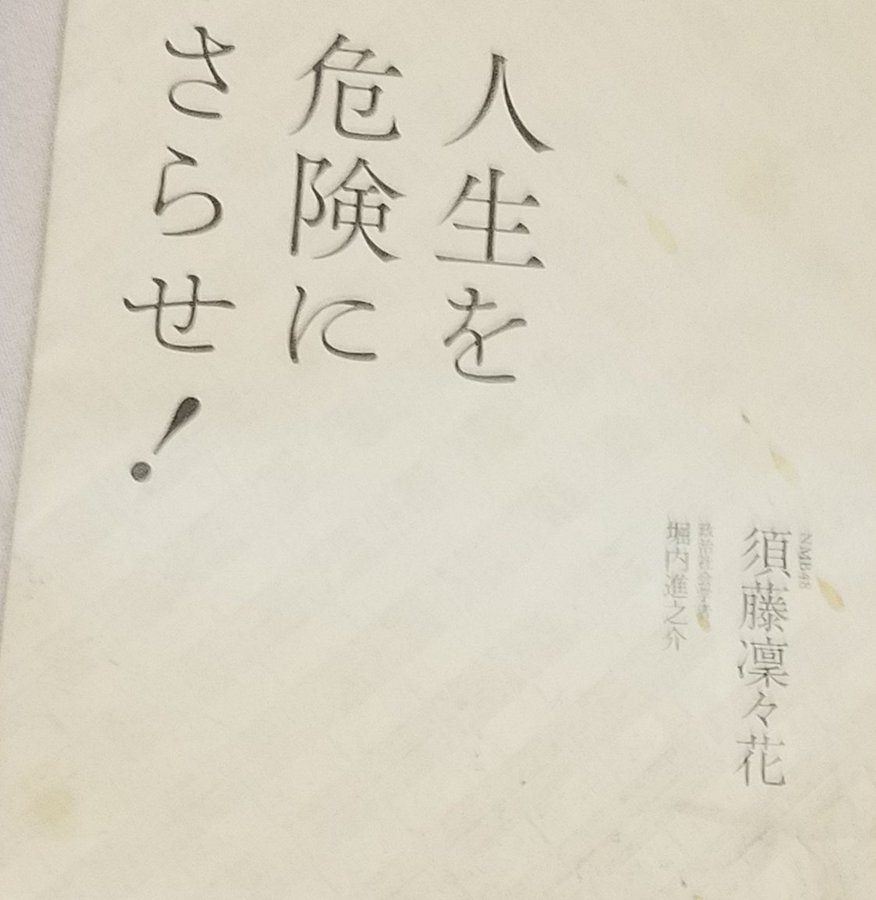 人生を
危険に
さらせ！
NMB48
須藤凜々花
政治社会学者
堀内進之介